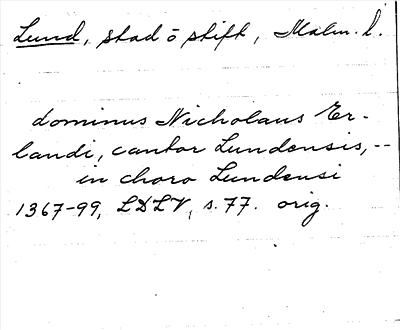 Lund, stad o stift, Malm. l.
dominus Nicholaus Er-
landi, cantor Lundensis, --
in choro Lundensi
1367-99, LDLV, s. 77. orig.